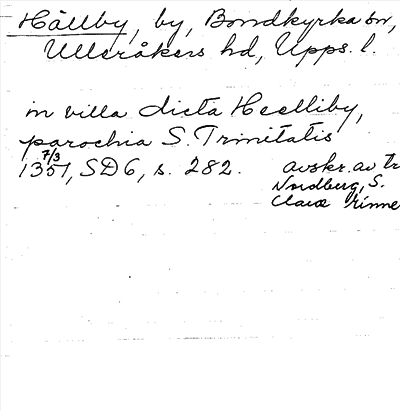 Hällby, by, Bondkyrka sn,
Ulleråkers hd, Upps. l.
in villa dicta Heelliby,
parochia S. Trinitatis
7/3
1351, SD6, s. 282. avskr. av Tr
Nordberg, S.
Claræ minne